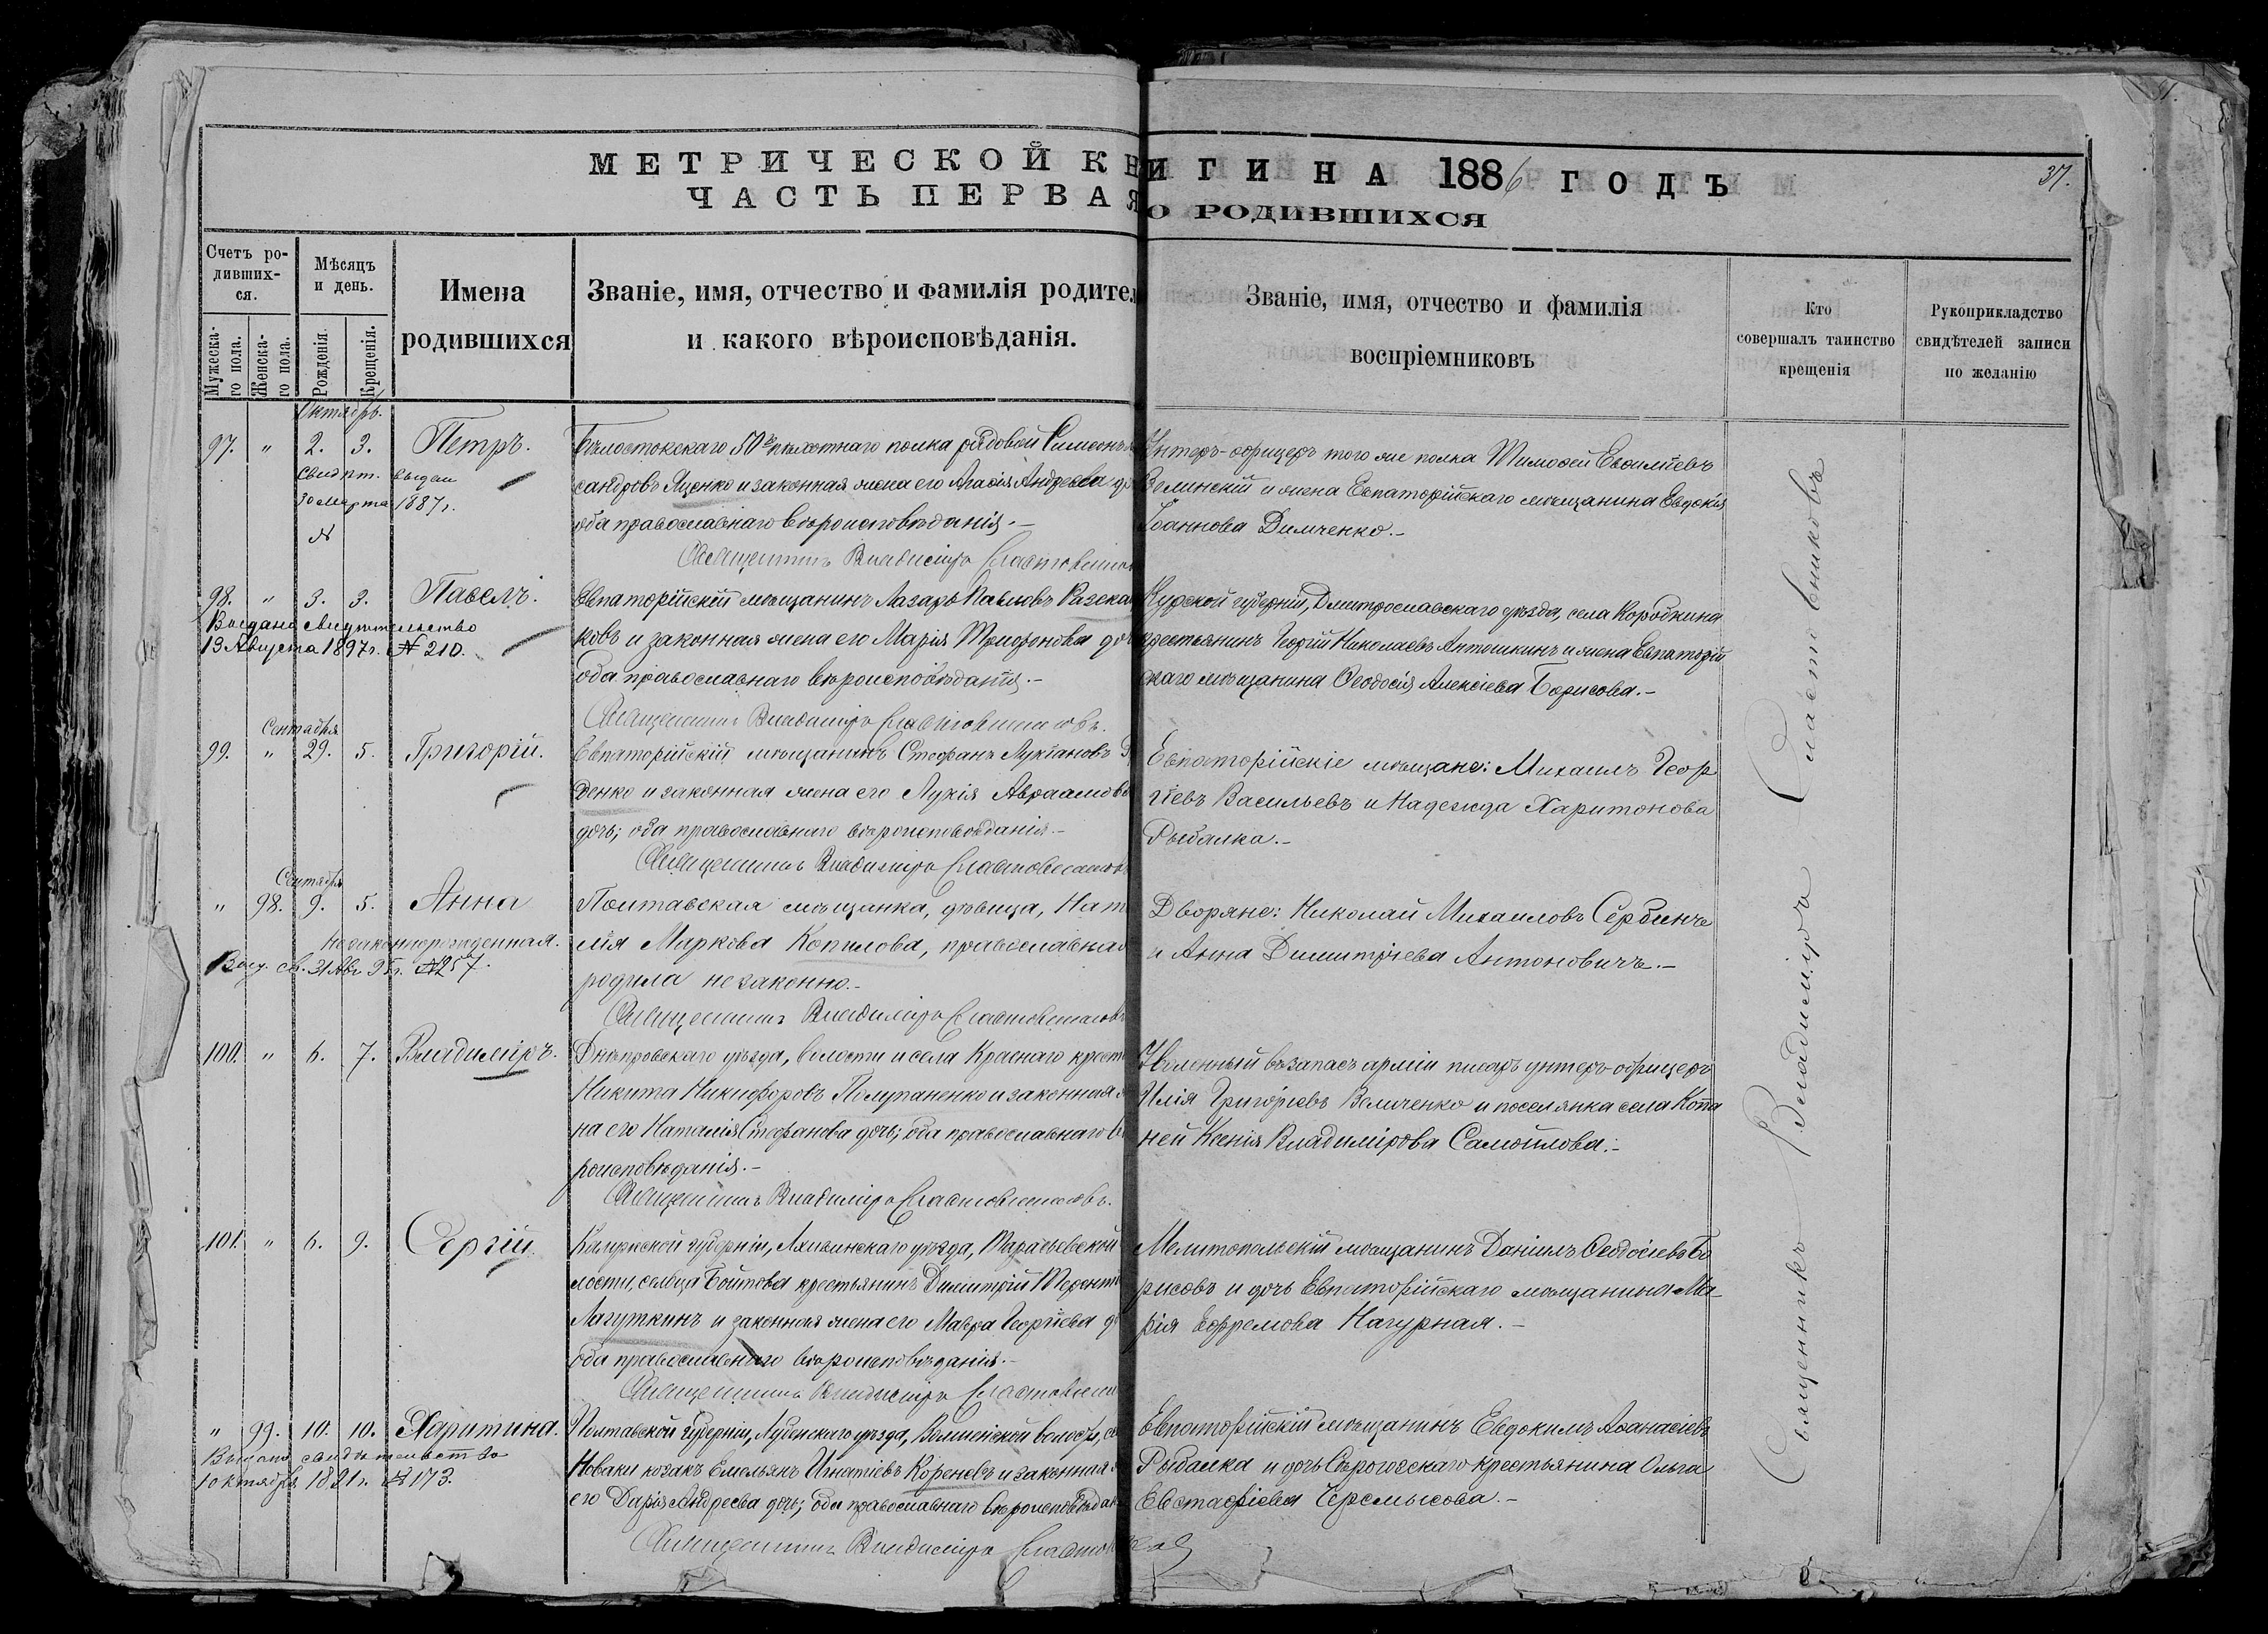 МЕТРИЧЕСКОЙ КНИГИ НА 1886 ГОДЪ
37.
ЧАСТЬ ПЕРВАЯ О РОДИВШИХСЯ
Счетъ ро-
дивших-
ся.
Мужеска-
го пола.
Женска-
го пола.
Мѣсяцъ
и день.
Рожденія.
Крещенія.
Имена
родившихся
Званіе, имя, отчество и фамилія родител
и какого вѣроисповѣданія.
Званіе, имя, отчество и фамилія
воспріемниковъ
Кто
совершалъ таинство
крещенія
Рукоприкладство
свидѣтелей записи
по желанію
Октябрь.
97. " 2. 3. Петръ.
Свидѣт. выдан
30 марта 1887 г.
№
Бѣлостокскаго 50го пѣхотнаго полка рядовой Симеонъ
сандровъ Яценко и законная жена его Агафія Андреева
оба православнаго вѣроисповѣданія.-
Священникъ Владиміръ Сластовников
Унтеръ-офицеръ того же полка Тимофей Евфиміевъ
Волинскій и жена Евпаторійскаго мѣщанина Евдокія
Іоаннова Димченко.-
98. " 3. 3. Павелъ.
Выдано свидѣтельство
13 Августа 1897 г. № 210.
Евпаторійскій мѣщанинъ Лазарь Павловъ Разска
ковъ и законная жена его Марія Трифонова доч
оба православнаго вѣроисповѣданія.-
Священникъ Владиміръ Сластовниковъ.
Курской губерніи, Дмитрославскаго уѣзда, села Коробкина
крестьянинъ Георгій Николаевъ Антошкинъ и жена Евпаторій
скаго мѣщанина Феодосія Алексіева Борисова.-
Сентября
99. " 29. 5. Григорій.
Евпаторійскій мѣщанинъ Стефанъ Лукіановъ
денко и законная жена его Лукія Авраамова
дочь; оба православнаго вѣроисповѣданія.-
Священникъ Владиміръ Сластовников
Евпаторійскіе мѣщане: Михаилъ Геор
гіевъ Васильевъ и Надежда Харитонова
Рыбалка.-
Сентябрь
" 98. 9. 5. Анна
Незаконнорожденная.
Выд. св. 31 Авг 95 г. № 257.
Полтавская мѣщанка, дѣвица, Ната
лія Маркова Копилова, православная
родила незаконно.-
Священникъ Владиміръ Сластовников
Дворяне: Николай Михаиловъ Сербинъ
и Анна Димитріева Антоновичъ.-
100. " 6. 7. Владиміръ.
Днѣпровскаго уѣзда, волости и села Краснаго крест
Никита Никифоровъ Полупаненко и законная
на его Наталія Стефанова дочь; оба православнаго вѣ
роисповѣданія.-
Священникъ Владиміръ Сластовниковъ.
Уволенный въ запасъ арміи писарь унтеръ-офицеръ
Илія Григоріевъ Величенко и поселянка села Копа
ней Ксенія Владимірова Самойлова.-
101. " 6. 9. Сергій.
Калужской губерніи, Лихвинскаго уѣзда, Тарасьевской
лости, сельца Бойтова крестьянинъ Димитрій Терент
Лагуткинъ и законная жена его Мавра Георгіева
оба православнаго вѣроисповѣданія.-
Священникъ Владиміръ Сластовник
Мелитопольскій мѣщанинъ Даніилъ Феодосіевъ Бо
рисовъ и дочь Евпаторійскаго мѣщанина Ма-
рія Ефремова Нагурная.-
" 99. 10. 10. Харитина.
Выдано свидѣтельство
1 октября 1891 г. № 173.
Полтавской губерніи, Лубенскаго уѣзда, волости,
Новаки козакъ Емельянъ Игнатіевъ Кореневъ и законная
его Дарія Андреева дочь; оба православнаго вѣроисповѣдан
Священникъ Владиміръ Сластовников
Евпаторійскій мѣщанинъ Евдокимъ Афанасіевъ
Рыбалка и дочь Сѣрогозскаго крестьянина Ольга
Евстафіева Черемысова.-
Священникъ Владиміръ Сластовниковъ